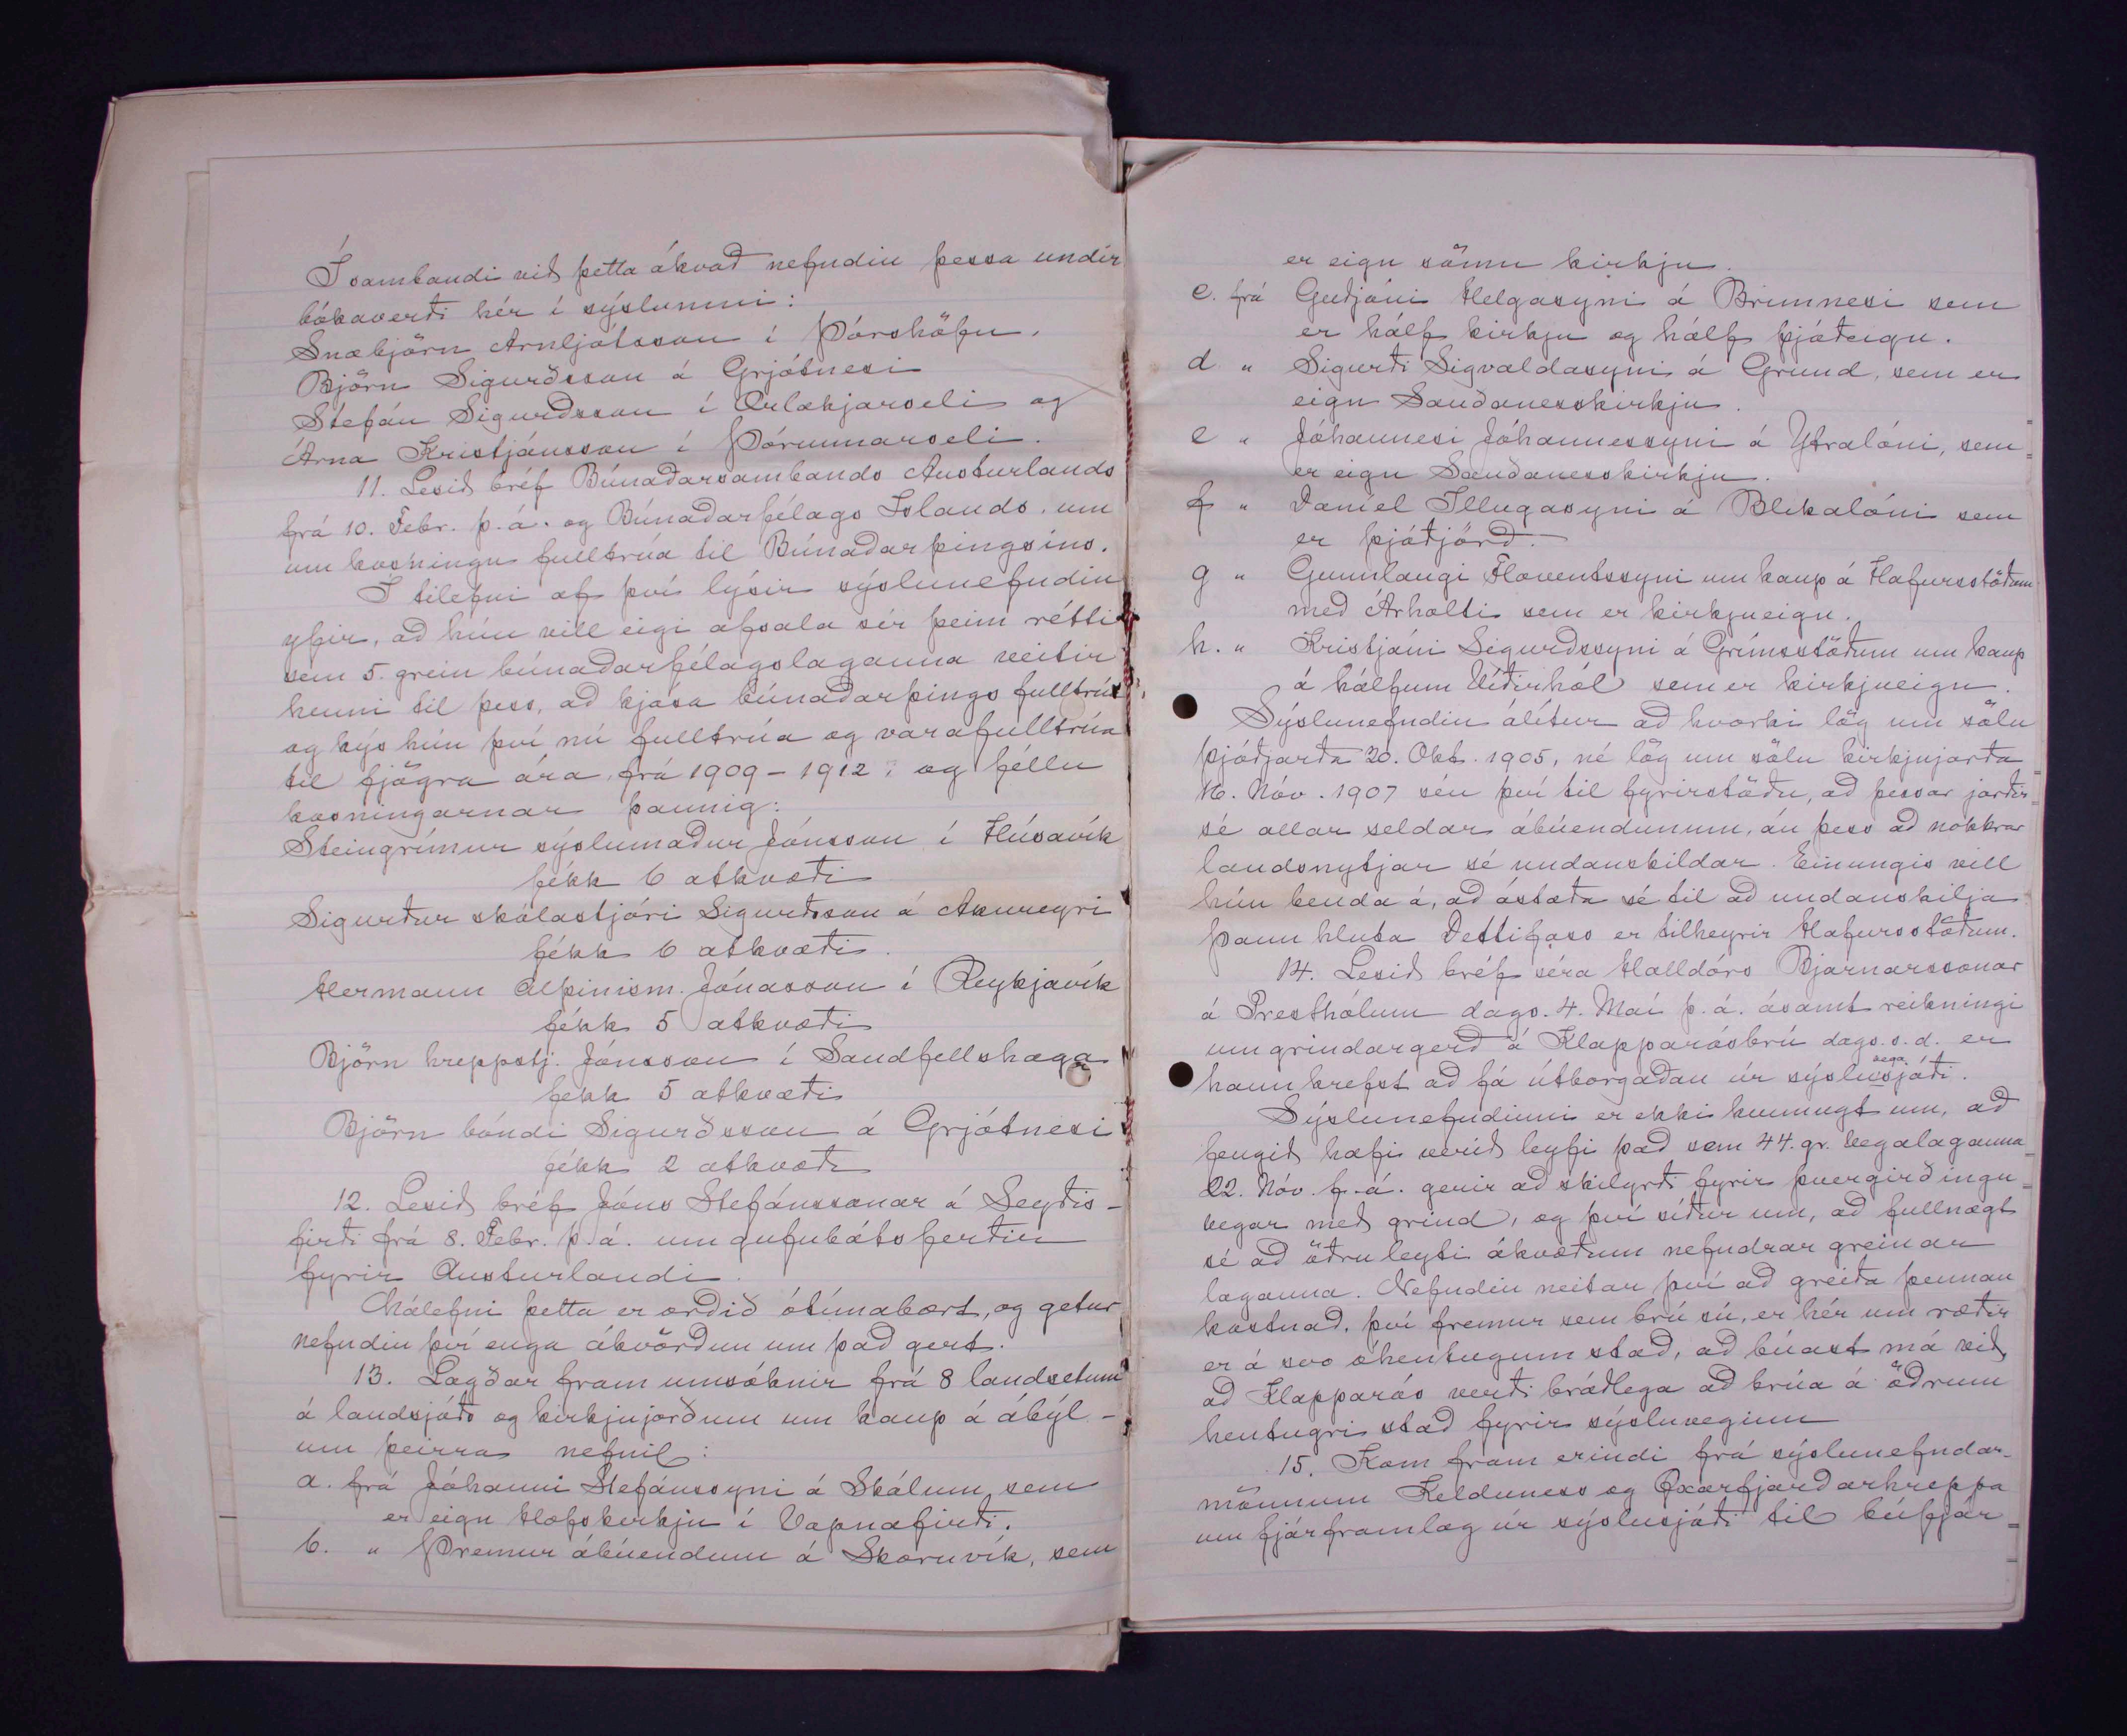 Í sambandi við þetta ákvað nefndin þessa undir
bókaverði hér í sýslunni:
Snæbjörn Arnljótsson í Þórshöfn.
Björn Sigurðsson á Grjótnesi
Stefán Sigurðsson í Ærlækjarseli og
Árna Kristjánsson í Þórunnarseli.
11. Lesið bréf Búnaðarsambands Austurlands
frá 10. Febr. þ.á. og Búnaðarfélags Íslands, um
um kosningu fulltrúa til Búnaðarþingsins.
Í tilefni af því lýsir sýslunefndin
yfir, að hún vill eigi afsala sér þeim rétti
sem 5. grein búnaðarfélagslaganna veitir
henni til þess, að kjósa búnaðarþings fulltrúa,
og kýs hún því nú fulltrúa og varafulltrúa
til fjögra ára, frá 1909-1912; og féllu
kosningarnar þannig:
Steingrímur sýslumaður Jónsson í Húsavík
fékk 6 atkvæði
Sigurður skólastjóri Sigurðsson á Akureyri
fékk 6 atkvæði.
Hermann alþinism. Jónasson í Reykjavík
fékk 5 atkvæði
Björn hreppstj. Jónsson í Sandfellshaga
fékk 5 atkvæði
Björn bóndi Sigurðsson á Grjótnesi
fékk 2 atkvæði
12. Lesið bréf Jóns Stefánssonar á Seyðis-
firði frá 8. Febr. þ.á. um gufubátsferðir
fyrir Austurlandi.
Málefni þetta er orðið ótímabært, og getur
nefndin því enga ákvörðun um það gert.
13. Lagðar fram umsóknir frá 8 landsetum
á landsjóðs og kirkjujörðum um kaup á ábýl-
um þeirra nefnil:
a. frá Jóhanni Stefánssyni á Skálum, sem
er eign Hofskirkju í Vapnafirði.
b. " Þremur ábúendum á Skoruvík, sem
er eign sömu kirkju.
c. frá Guðjóni Helgasyni á Brimnesi sem
er hálf kirkju og hálf þjóðeign.
d. " Sigurði Sigvaldasyni á Grund, sem er
eign Sauðanesskirkju.
e " Jóhannesi Jóhannessyni á Ytralóni, sem
er eign Sauðanesskirkju.
f " Daníel Illugasyni á Blikalóni sem
er þjóðjörð.
g " Gunnlaugi Flóventssyni um kaup á Hafursstöðum
með Árholti sem er kirkjueign.
h. " Kristjáni Sigurðssyni á Grímsstöðum um kaup
á hálfum Víðirhól sem er kirkjueign.
Sýslunefndin álítur að hvorki lög um sölu
þjóðjarða 20. Okt. 1905, né lög um sölu kirkjujarða
16. Nóv. 1907 séu því til fyrirstöðu, að þessar jarðir
sé allar seldar ábúendunum, án þess að nokkrar
landsnytjar sé undanskildar. Einungis vill
hún benda á, að ástæða sé til að undanskilja
þann hluta Dettifoss er tilheyrir Hafursstöðum.
14. Lesið bréf séra Halldórs Bjarnarssonar
á Presthólum dags. 4. Maí þ.á. ásamt reikningi
um grindargerð á Klapparósbrú dags. s.d. er
hann krefst að fá útborgaðan úr sýsluvegasjóði.
Sýslunefndinni er ekki kunnugt um, að
fengið hafi verið leyfi það sem 44. gr. vegalaganna
22. Nóv. f.á. gerir að skilyrði fyrir þvergirðingu
vegar með grind, og því síður um, að fullnægt
sé að öðru leyti ákvæðum nefndrar greinar
laganna. Nefndin neitar því að greiða þennan
kostnað, því fremur sem brú sú, er hér um ræðir
er á svo óhentugum stað, að búast má við,
að Klapparós verði bráðlega að brúa á öðrum
hentugri stað fyrir sýsluveginn
15. Kom fram erindi frá sýslunefndar-
mönnum Kelduness og Öxarfjarðarhreppa
um fjárframlag úr sýslusjóði til búfjár